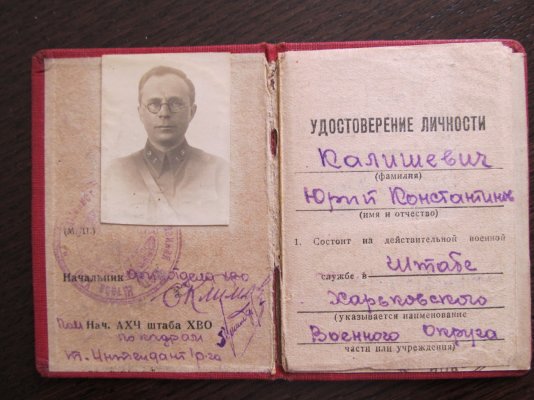 (М. П.)
Начальник
Пом Нач. АХЧ штаба ХВО
по кадрам
т. Интендант 1 рга
УДОСТОВЕРЕНИЕ ЛИЧНОСТИ
Калишевич
(фамилия)
Юрий Константинов
(имя и отчество)
1. Состоит на действительной военной
службе в Штабе
Харьковского
(указывается наименование
Военного Округа
части или учреждения)